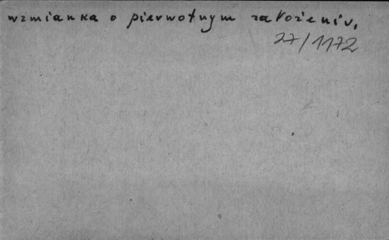 wzmianka o pierwotnym założeniu,
27/1172